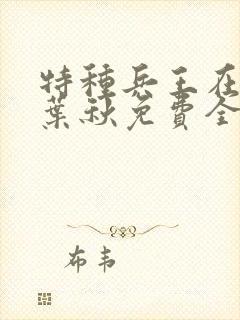 特种兵王在
葉秋免費全
布韦